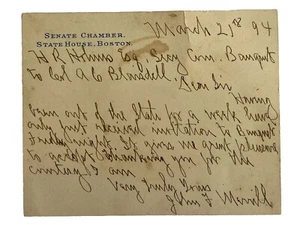 SENATE CHAMBER.
STATE HOUSE, BOSTON.
March 21st 94
H R Holmes Esq Secy Com. Banquet
to Col A C
Dear Sir
Having
been out of the State for a week have
only just received invitation to Banquet
Friday night. It gives me great pleasure
to accept. Thanking you for the
courtesy I am
Very truly yours
John F Merrill